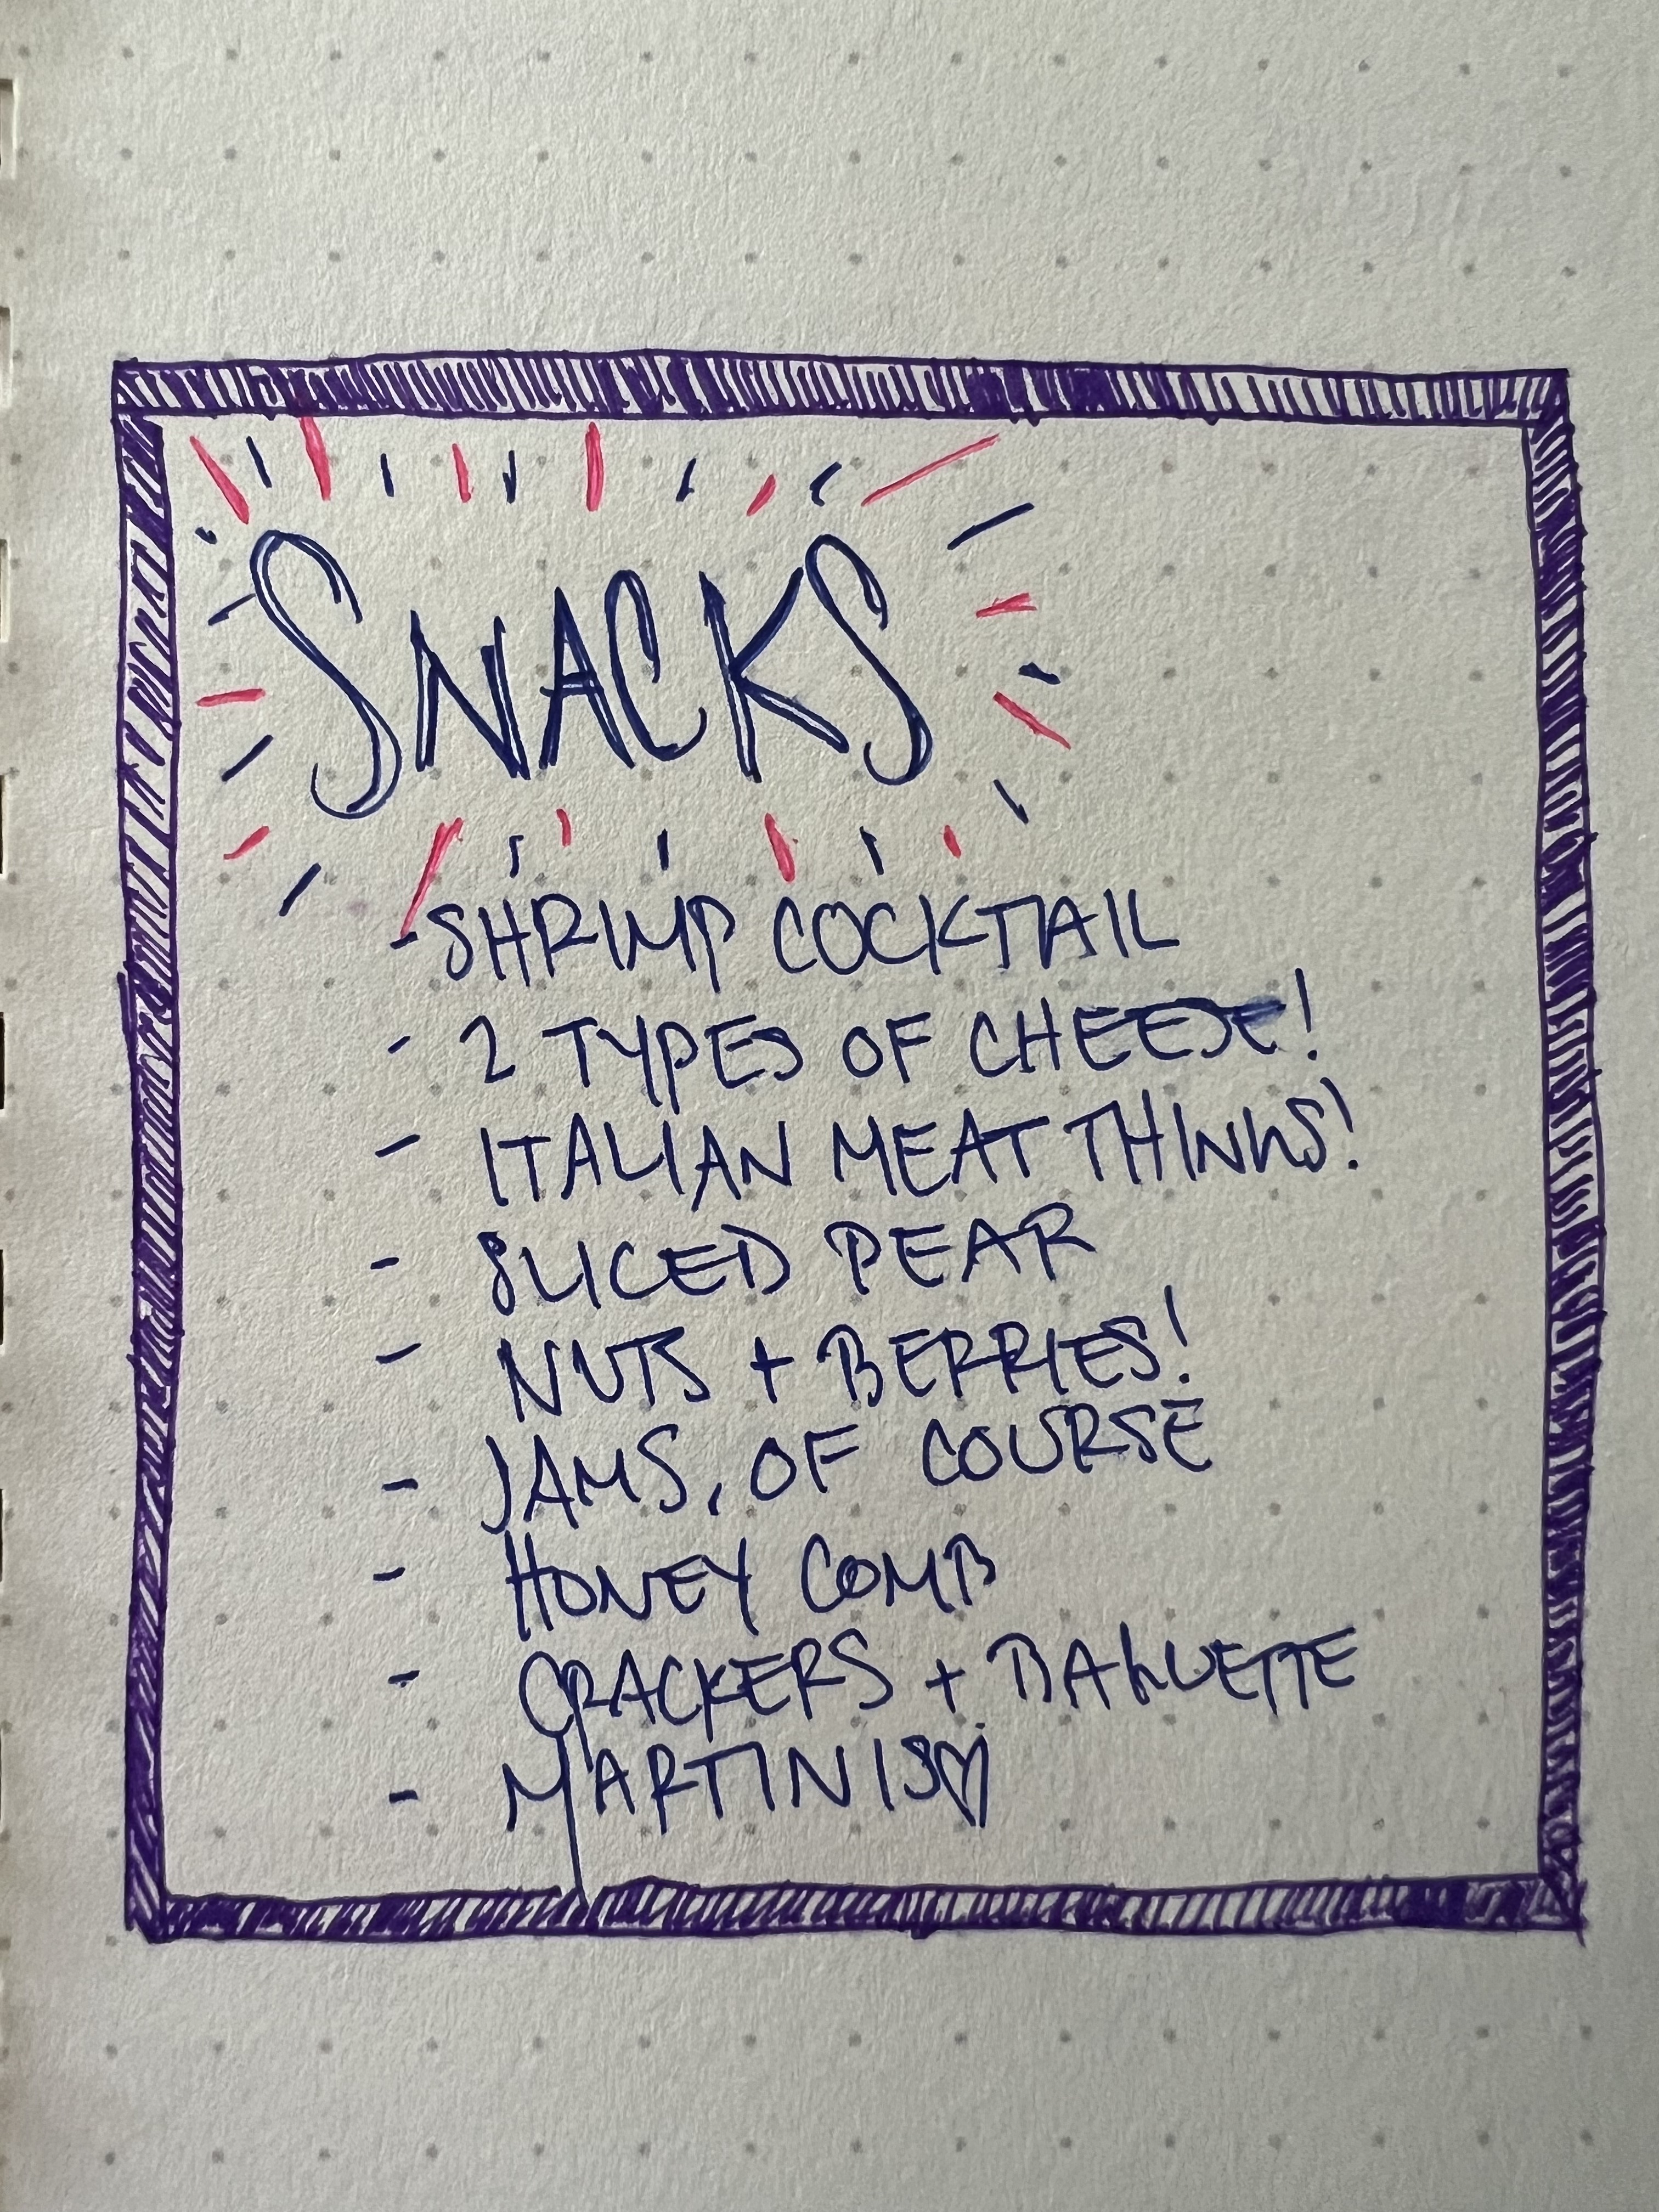 SNACKS
- SHRIMP COCKTAIL
- 2 TYPES OF CHEESE!
- ITALIAN MEAT THINGS!
- SLICED PEAR
- NUTS + BERRIES!
- JAMS, OF COURSE
- HONEY COMB
- CRACKERS + BAGUETTE
- MARTINIS♡